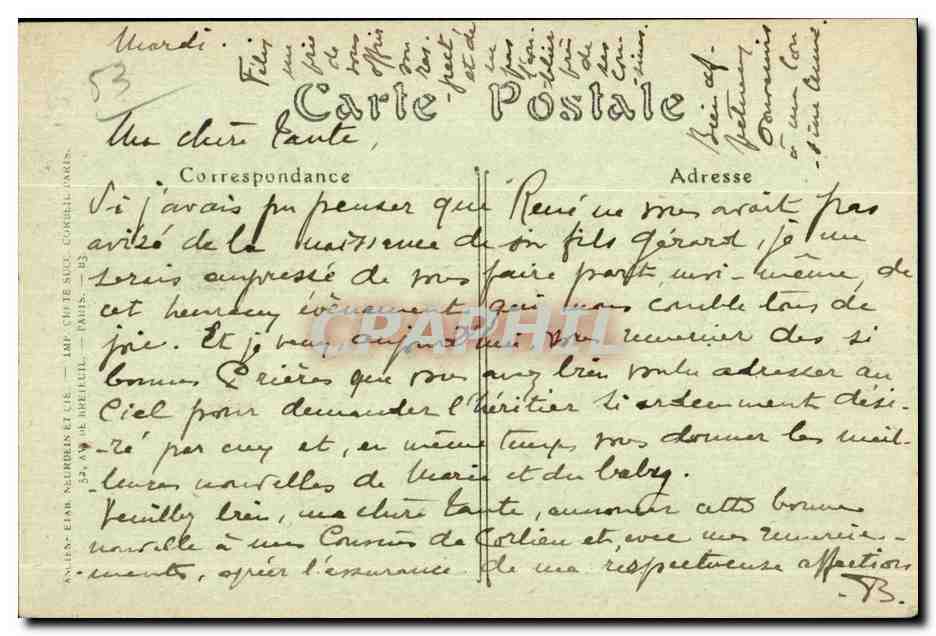 Mardi.
53
Carte Postale
Ma chère Tante,
Correspondance
Adresse
Si j'avais pu penser que René ne vous avait pas
avisé de la naissance de son fils Gérard, je me
serais empressé de vous faire part, moi-même, de
cet heureux évènement qui nous comble tous de
joie. Et je veux, aujourd'hui vous remercier des si
bonnes Prières que vous avez bien voulu adresser au
Ciel pour demander l'héritier si ardemment dési-
-ré par eux et, en même temps vous donner les meil-
-leures nouvelles de Marie et du baby.
Veuillez bien, ma chère Tante, annoncer cette bonne
nouvelle à mes Cousins de Corlieu et, avec mes remercie-
-ments, agréer l'assurance de ma respectueuse affection
B.
me
prie
de
vous
offrir
son
res
-pect
et de
ne
pas
l'ou-
-blier
près
de
des
Cou-
-sins.
Bien af-
Souvenirs
à ma Cou
-sine
ANCIENS ETAB. NEURDEIN ET CIE. — IMP. CRÉTÉ SUCC. CORBEIL-PARIS.
52, AV. DE BRETEUIL. — PARIS. — B3
CPAPHIL